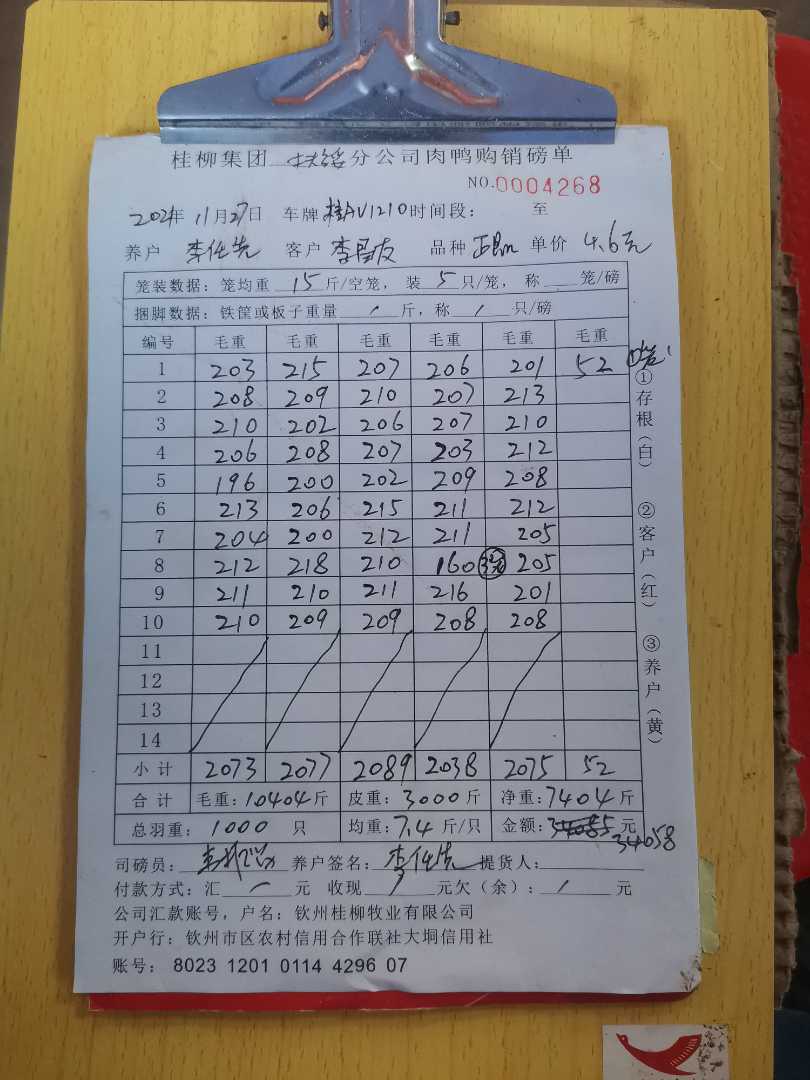 桂柳集团 扶绥 分公司肉鸭购销磅单
NO.0004268
2021年 11月27日 车牌 桂AV1210 时间段： 至
养户 李仕先 客户 李昌友 品种 单价 4.6元
笼装数据：笼均重 15 斤/空笼，装 5 只/笼，称 笼/磅
捆脚数据：铁筐或板子重量 / 斤，称 / 只/磅
编号 毛重 毛重 毛重 毛重 毛重 毛重
1 203 215 207 206 201 52
2 208 209 210 207 213
3 210 202 206 207 210
4 206 208 207 203 212
5 196 200 202 209 208
6 213 206 215 211 212
7 204 200 212 211 205
8 212 218 210 160 205
9 211 210 211 216 201
10 210 209 209 208 208
11
12
13
14
小计 2073 2077 2089 2038 2075 52
合计 毛重：10404斤 皮重：3000斤 净重：7404斤
总羽重：1000 只 均重：7.4斤/只 金额：34085元
34058
司磅员： 养户签名：李仕先 提货人：
付款方式：汇 / 元 收现 / 元欠（余）：/ 元
公司汇款账号，户名：钦州桂柳牧业有限公司
开户行：钦州市区农村信用合作联社大垌信用社
账号：8023 1201 0114 4296 07
①存根（白） ②客户（红） ③养户（黄）